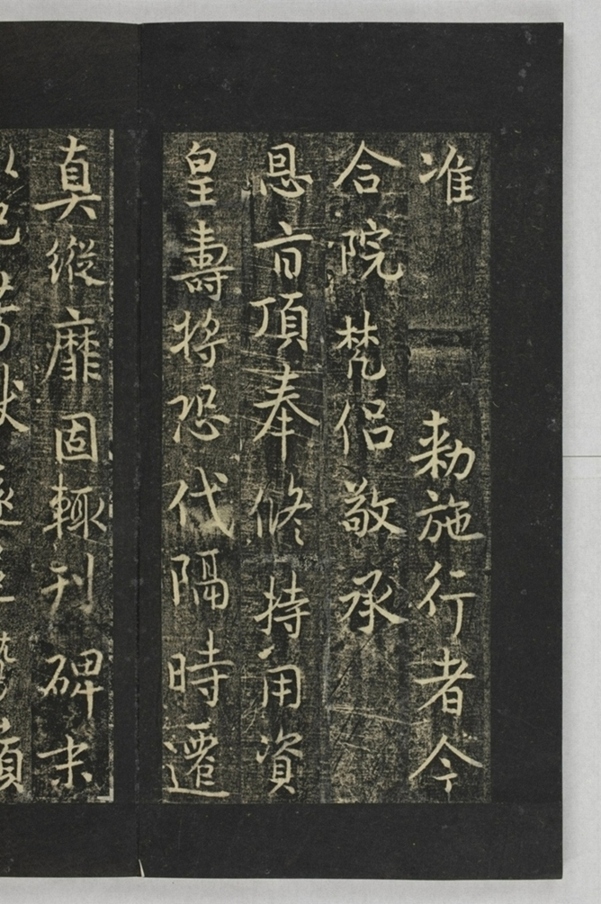 准 勅施行者今
合院梵侶敬承
恩旨頂奉修持用資
皇壽將恐代隔時遷
真縱靡固輙刊碑末